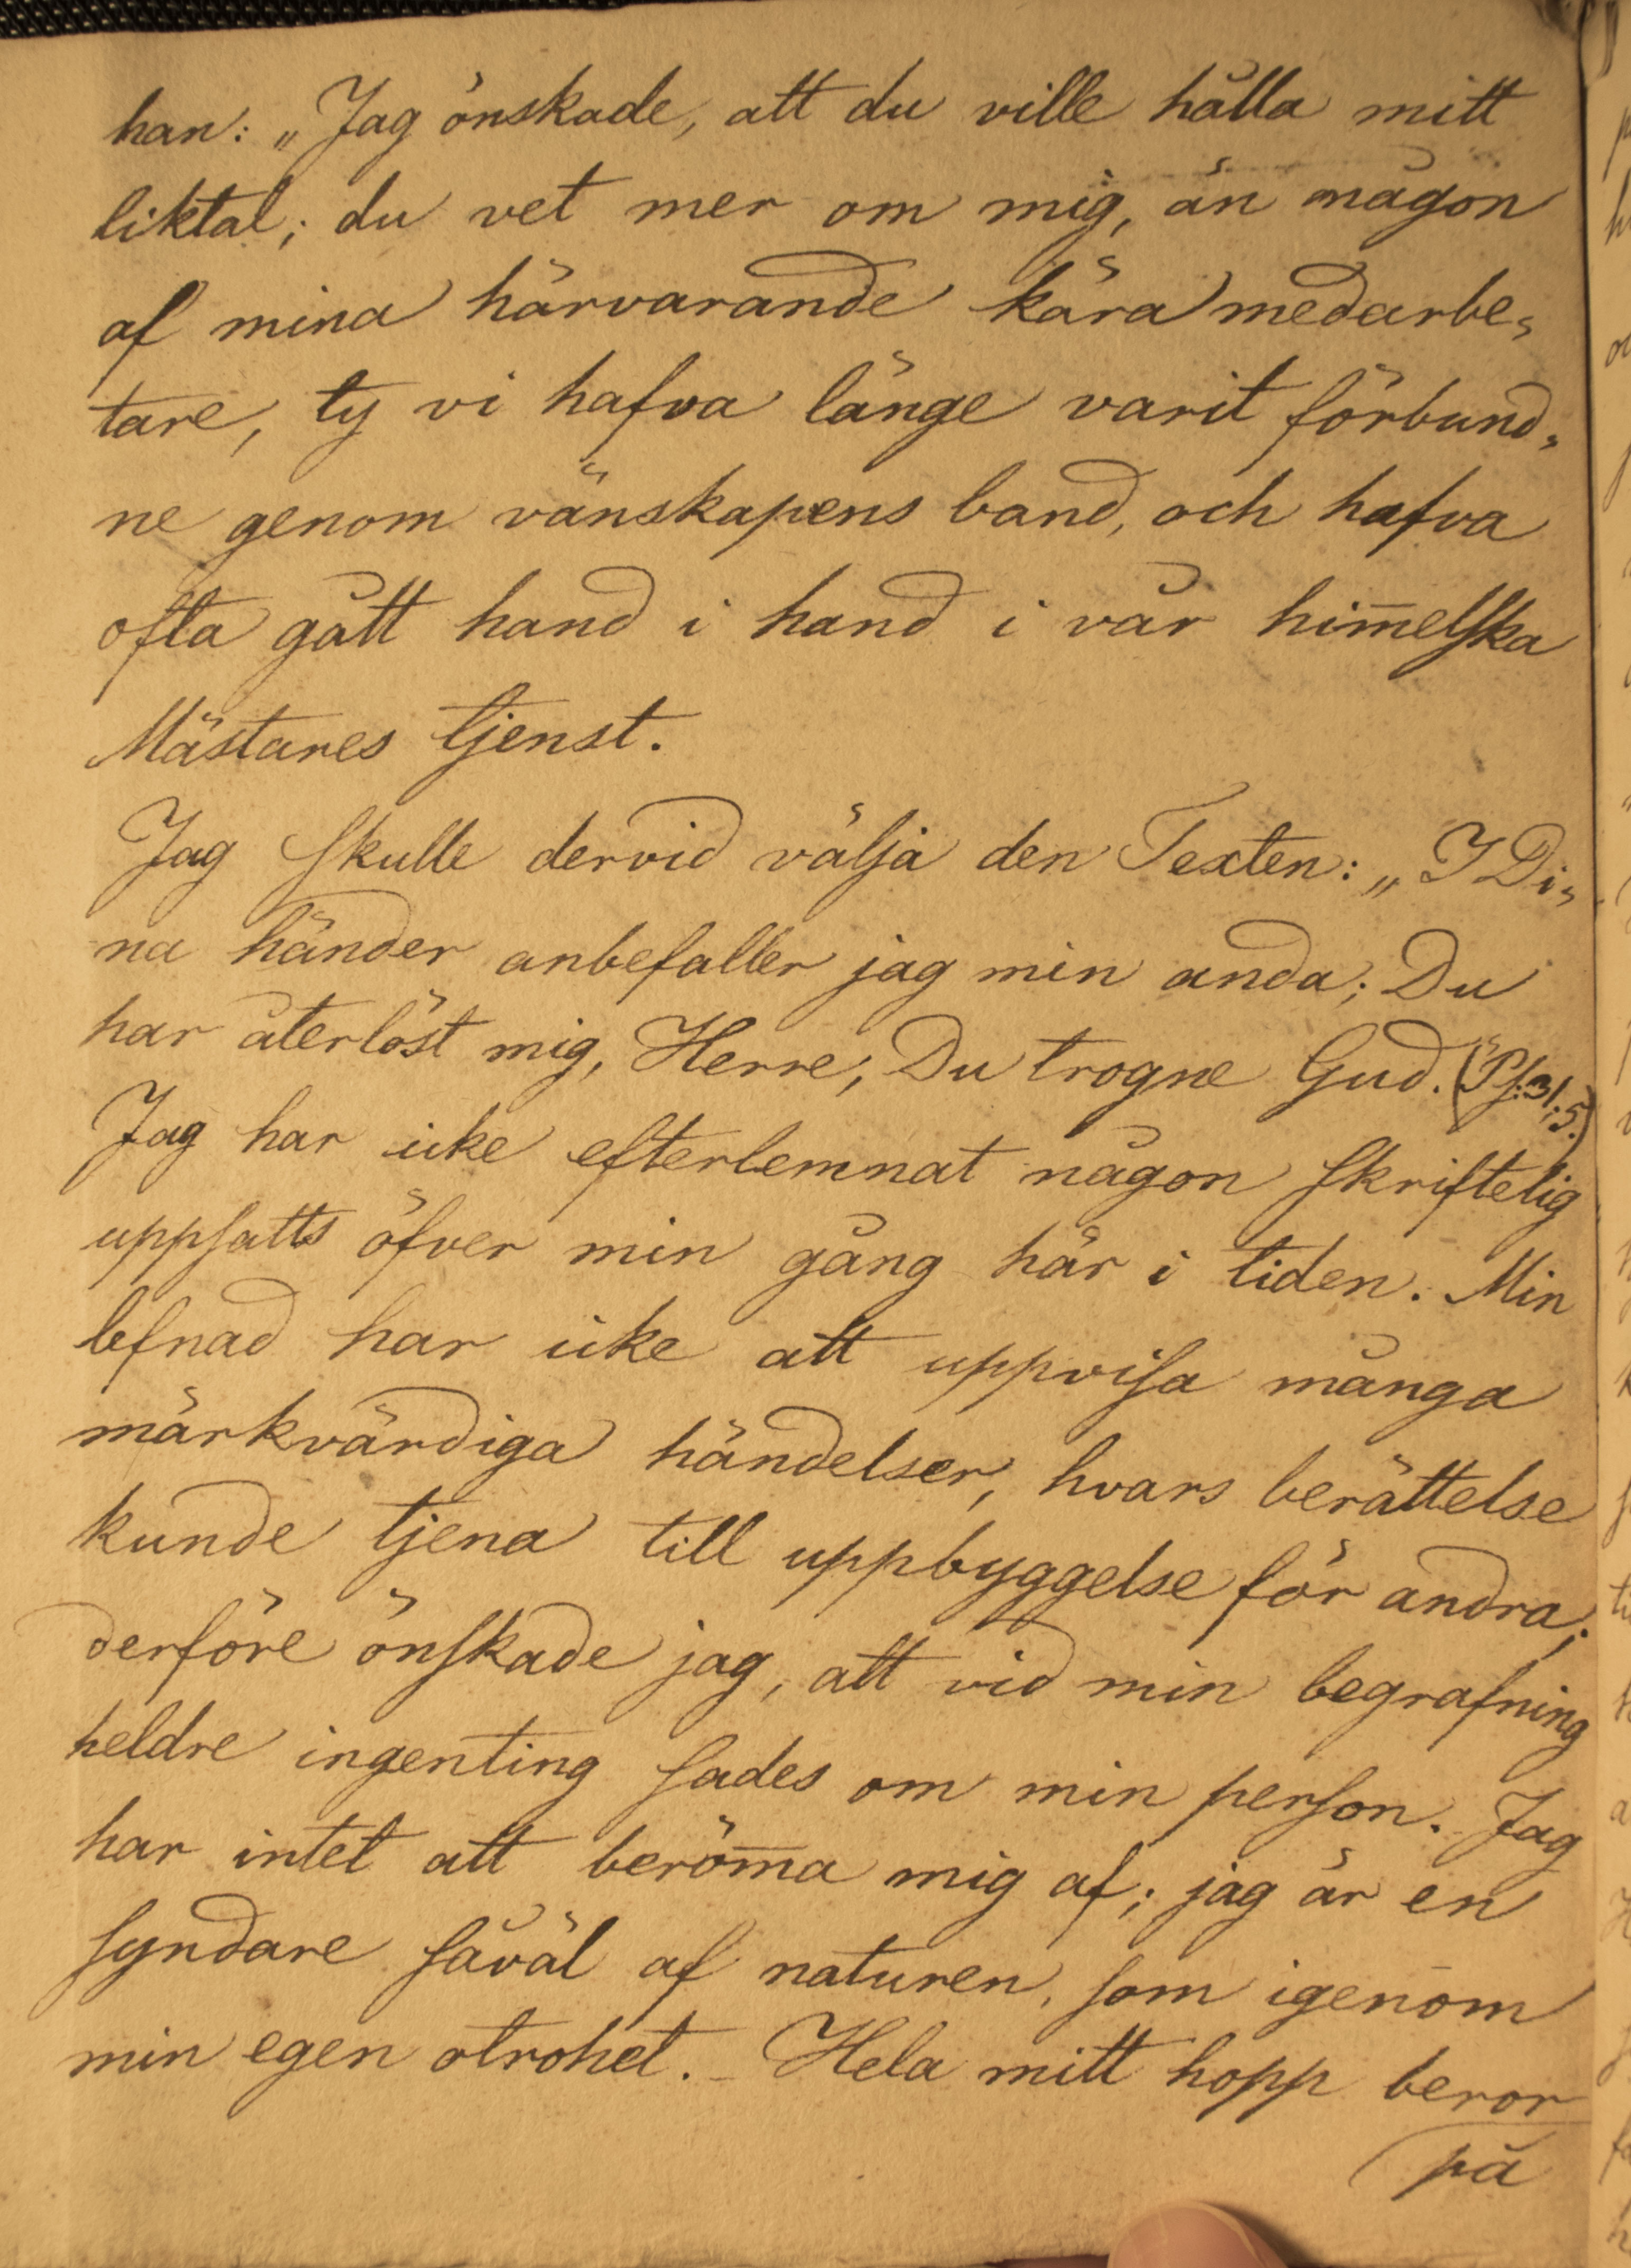 han: „Jag önskade, att du ville hålla mitt
liktal; du vet mer om mig, än någon
af mina härvarande kära medarbe„
tare, ty vi hafva länge varit förbund„
ne genom vänskapens band, och hafva
ofta gått hand i hand i vår him̅elska
Mästares tjenst.
Jag skulle dervid välja den Texten: „I Di„
na händer anbefaller jag min anda; Du
har återlöst mig, Herre, Du trogne Gud. (Ps. 31, 5.)
Jag har icke efterlemnat någon skriftelig
uppsatts öfver min gång här i tiden. Min
lefnad har icke att uppvisa många
märkvärdiga händelser, hvars berättelse
kunde tjena till uppbyggelse för andra;
derföre önskade jag, att vid min begrafning
heldre ingenting sades om min person. Jag
har intet att beröm̅a mig af; jag är en
syndare såväl af naturen, som igenom
min egen otrohet. – Hela mitt hopp beror
på